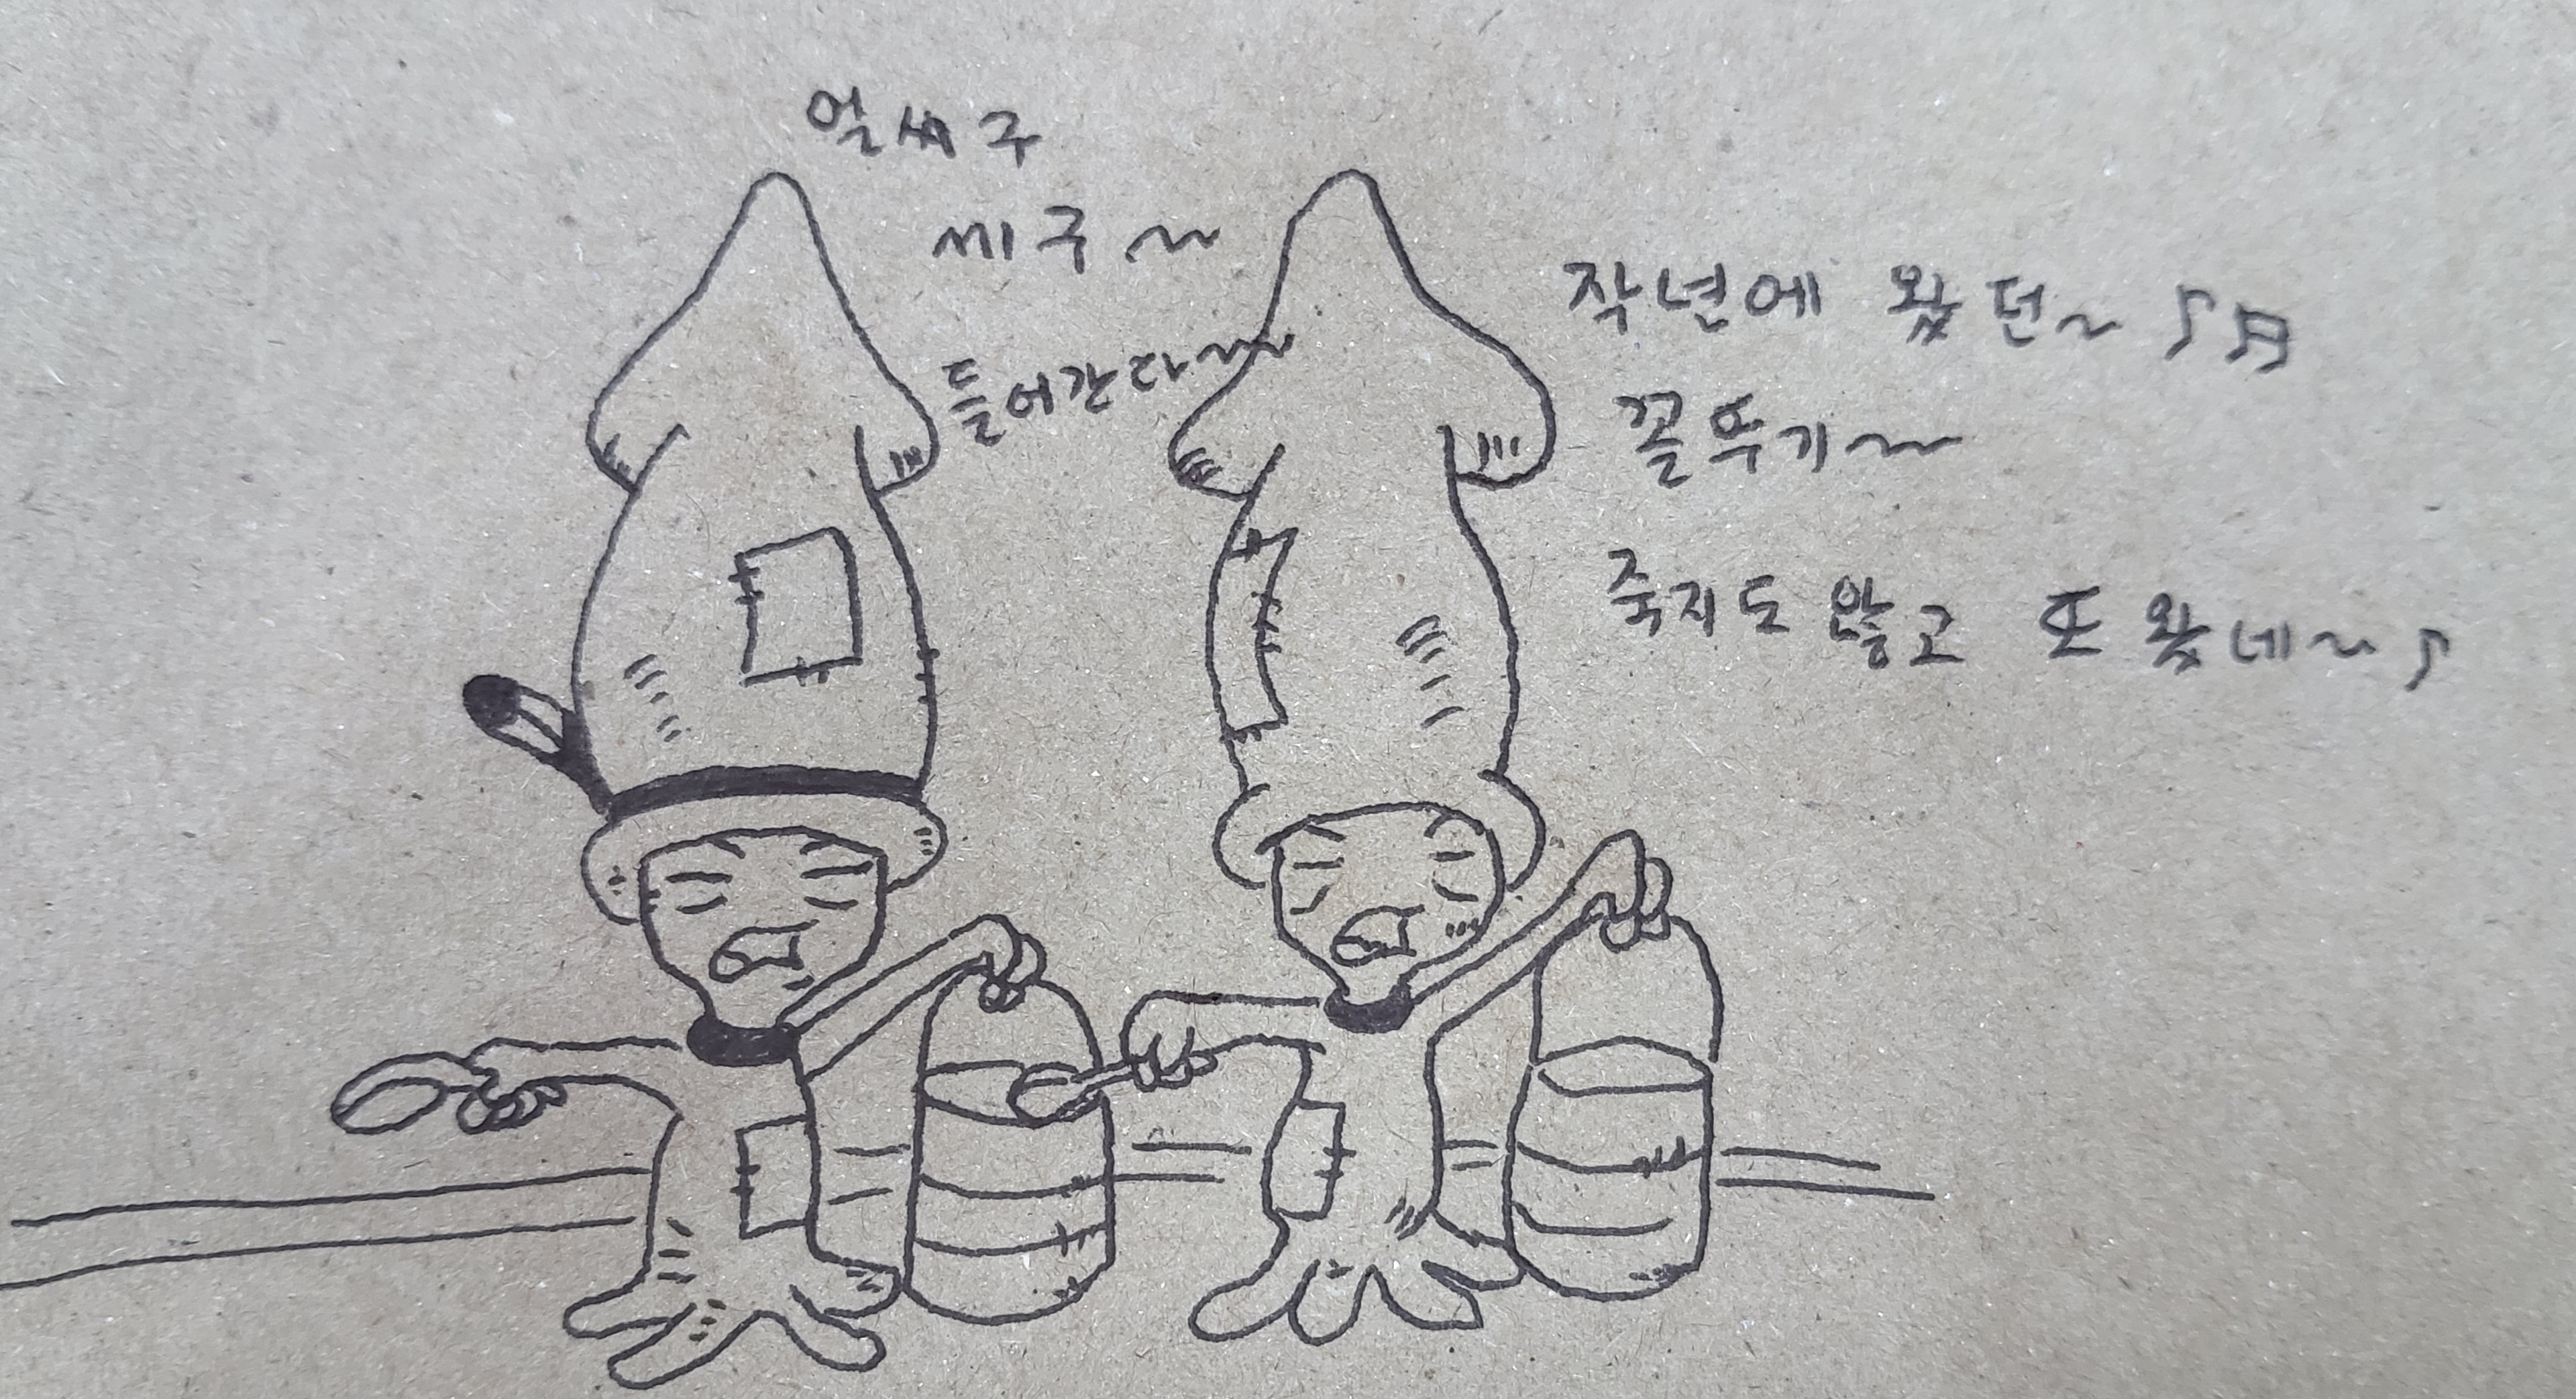 얼씨구
씨구~
들어간다~
작년에 왔던~ ♪♬
꼴뚜기~
죽지도 않고 또 왔네~♪